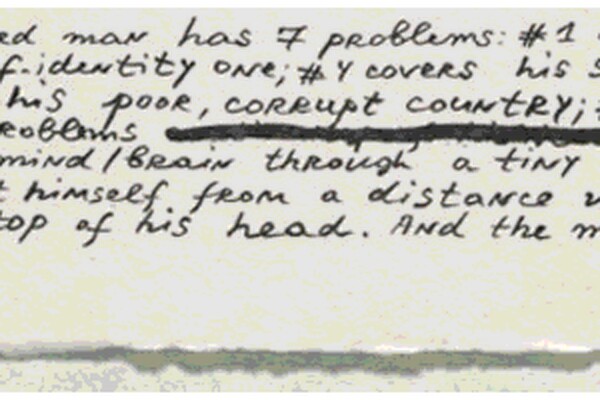 ed man has 7 problems: #1
f-identity one; #4 covers his s
his poor, corrupt country;
roblems
mind/brain through a tiny
t himself from a distance
top of his head. And the m